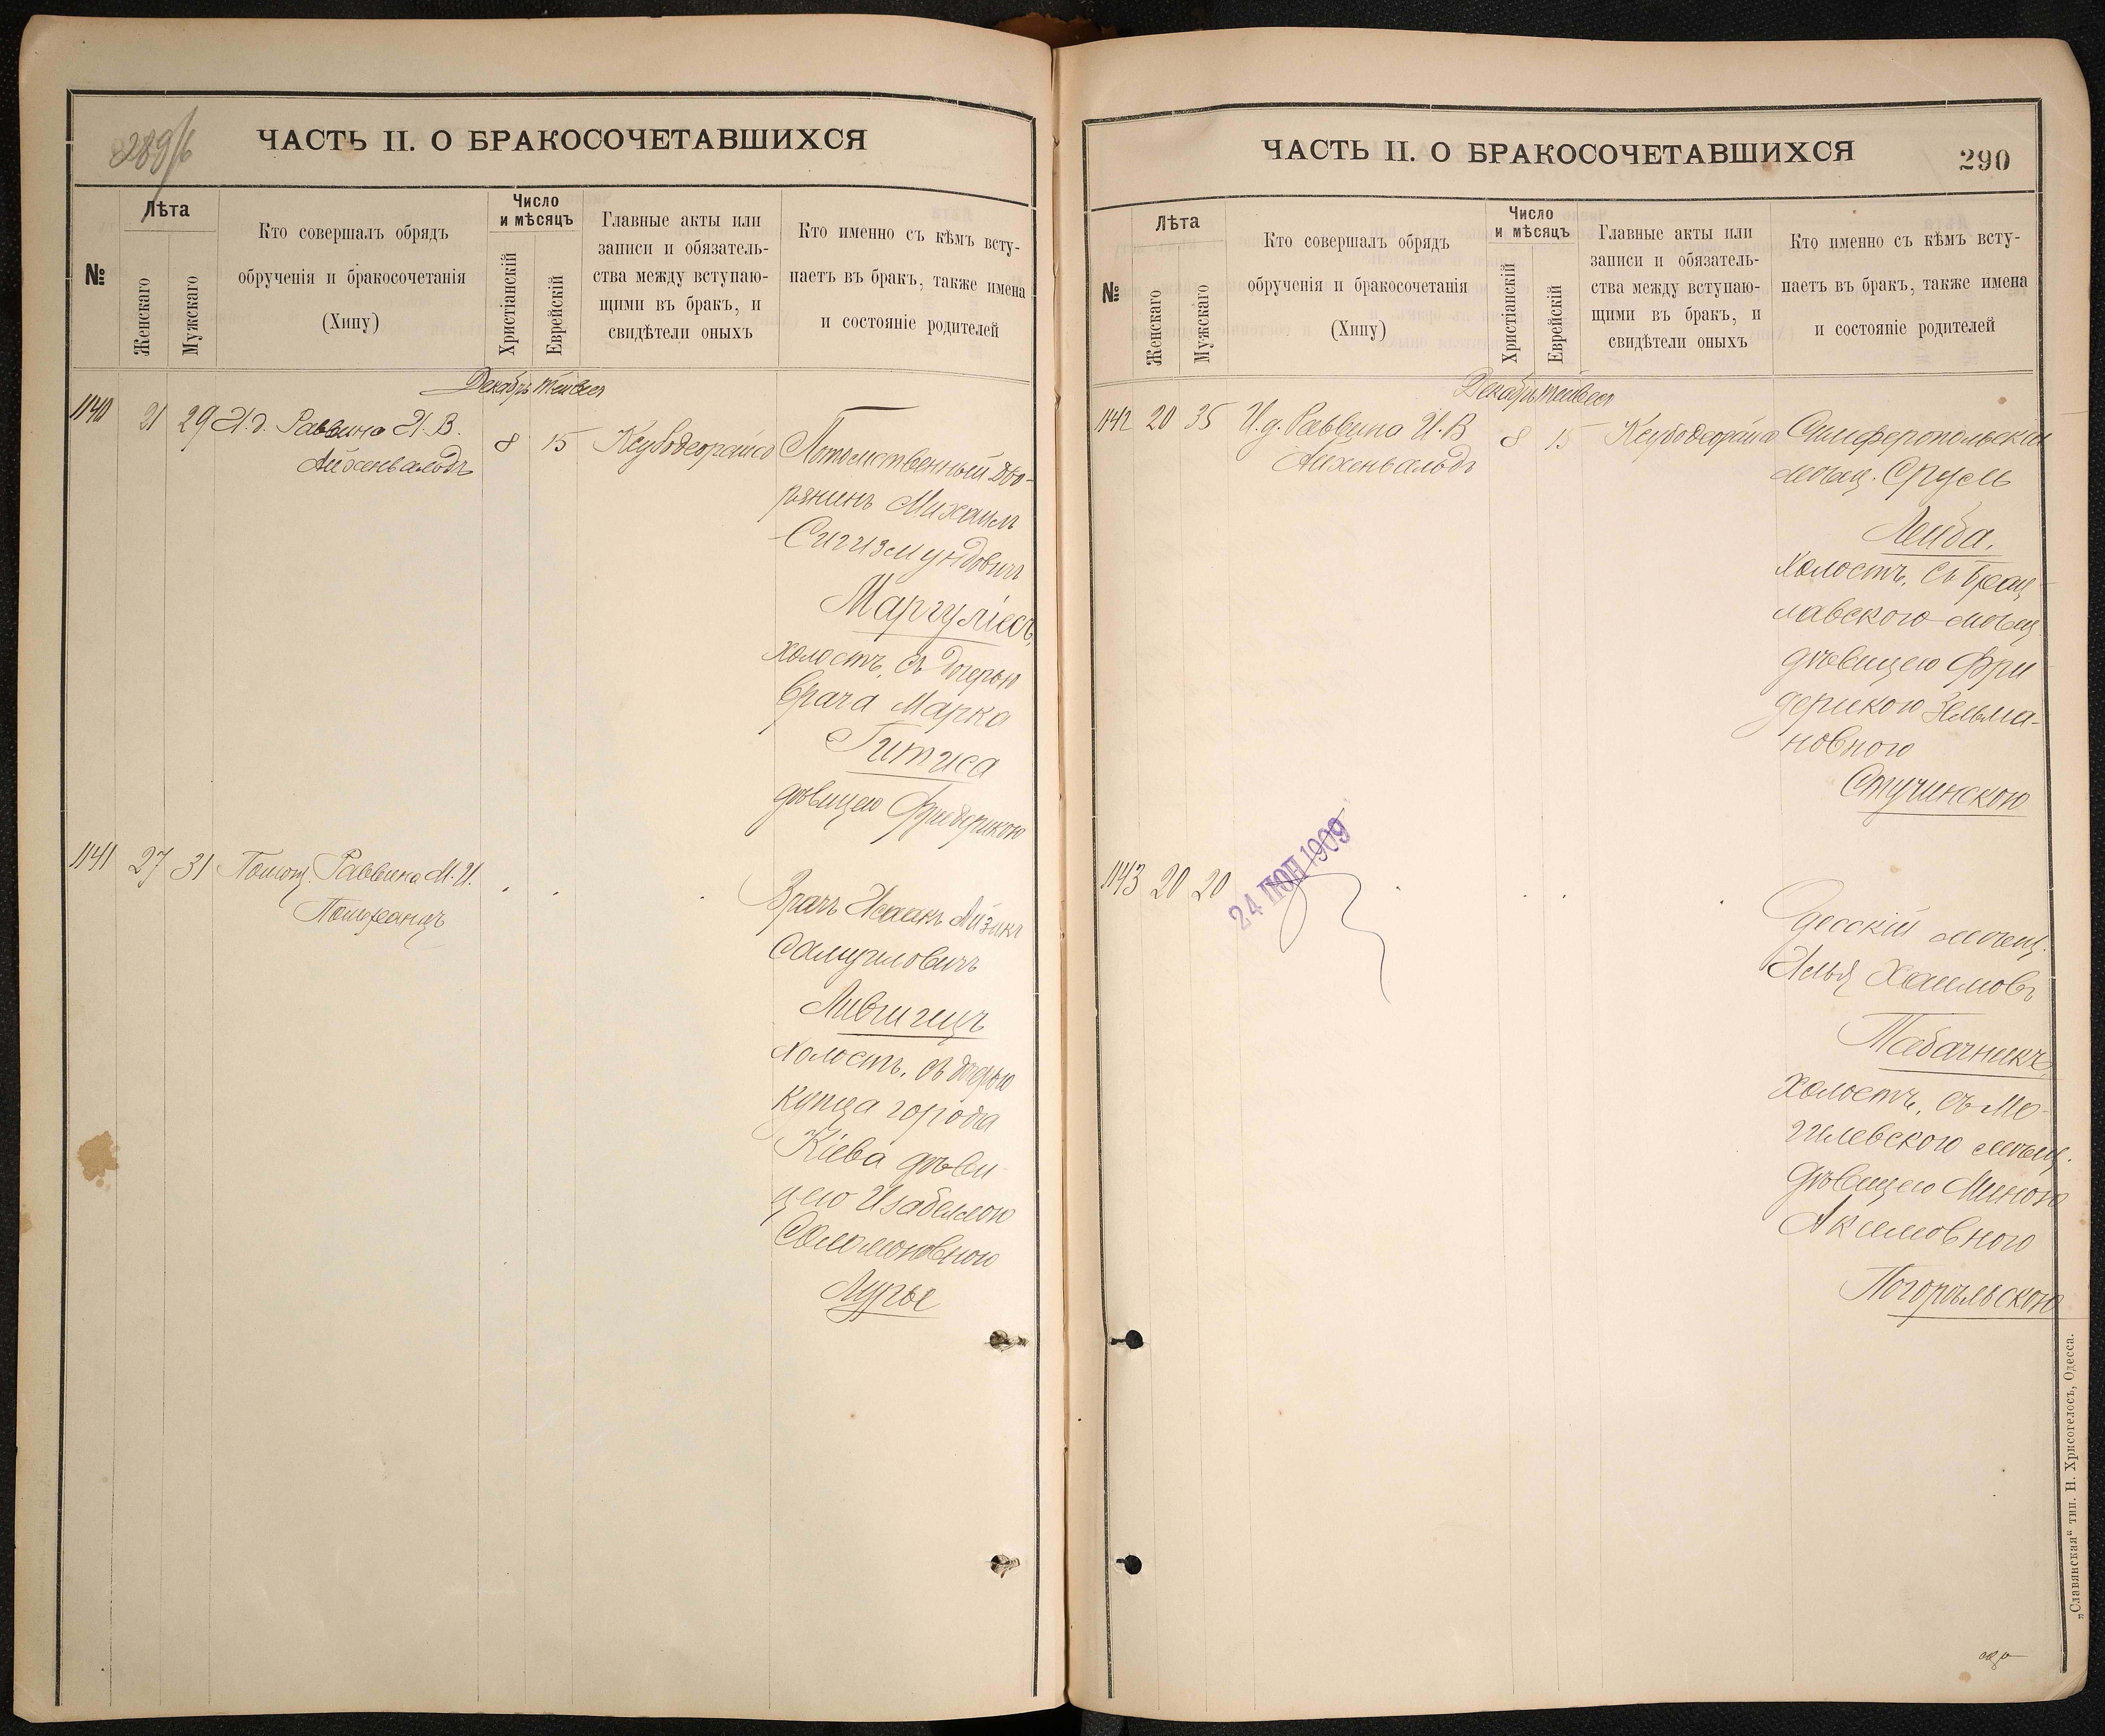 289/б
ЧАСТЬ II. О БРАКОСОЧЕТАВШИХСЯ
№
Лѣта
Женскаго
Мужскаго
Кто совершалъ обрядъ
обрученія и бракосочетанія
(Хипу)
Число
и мѣсяцъ
Христіанскій
Еврейскій
Главные акты или
записи и обязатель-
ства между вступаю-
щими въ бракъ, и
свидѣтели оныхъ
Кто именно съ кѣмъ всту-
паетъ въ бракъ, также имена
и состояніе родителей
Декабрь Тейвес
1140 21 29 И.д. Раввина И.В.
Айхенвальдъ
8 15 Ксубодеорайсо
Потомственный дво-
рянинъ Михаилъ
Сигизмундовичъ
Маргуліесъ,
холостъ, съ дочерью
врача Марка
Гитиса
дѣвицею Фридерикою
1141 27 31 Помощ. Раввина М.И.
Полиранцъ
Врачъ Исаакъ Айзикъ
Самуиловичъ
Лившицъ
холостъ, съ дочерью
купца города
Кіева дѣви
цею Изабеллою
Соломоновною
Лурье
ЧАСТЬ II. О БРАКОСОЧЕТАВШИХСЯ
290
№
Лѣта
Женскаго
Мужскаго
Кто совершалъ обрядъ
обрученія и бракосочетанія
(Хипу)
Число
и мѣсяцъ
Христіанскій
Еврейскій
Главные акты или
записи и обязатель-
ства между вступаю-
щими въ бракъ, и
свидѣтели оныхъ
Кто именно съ кѣмъ всту-
паетъ въ бракъ, также имена
и состояніе родителей
Декабрь Тейвес
1142 20 35 И.д. Раввина И.В
Айхенвальдъ
8 15 Ксубодеорайсо
Симферопольскій
мѣщ. Сруль
Лейба,
холостъ, съ брац
лавскою мѣщ
дѣвицею Фри
дерикою Зельма-
новною
Стучинскою
1143 20 20
24 ІЮН 1909
Одесскій мѣщ.
Илья Хаимовъ
Табачникъ,
холостъ, съ Мо-
гилевскою мѣщ.
дѣвицею Миною
Акимовною
Погорѣльскою
„Славянская“ тип. Н. Хрисогелосъ, Одесса.